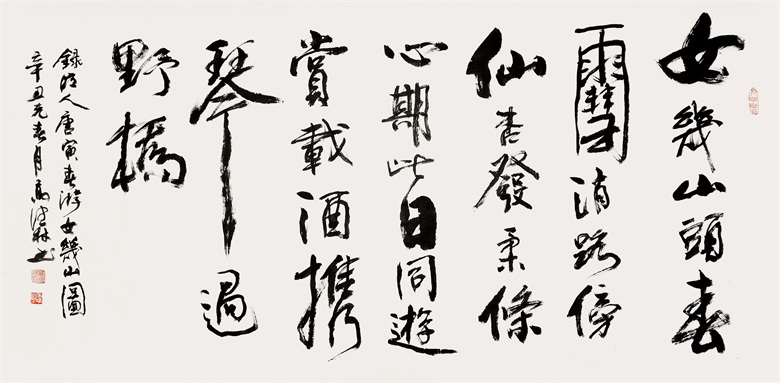 女幾山頭春
雪消路傍
仙杏發柔條
心期此日同遊
賞載酒攜
琴過
野橋
錄明人唐寅春游女幾山圖
辛丑元春月馬林书